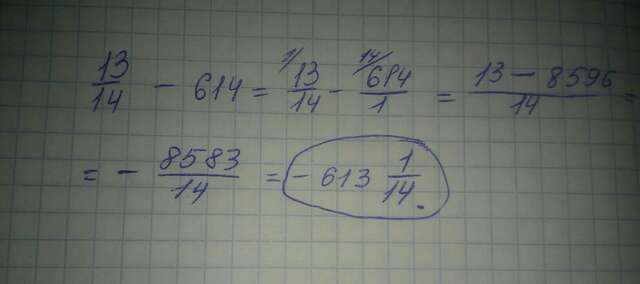 13/14 - 614 = 1/ 13/14 - 14/ 614/1 = 13 - 8596/14 =
= - 8583/14 = - 613 1/14.